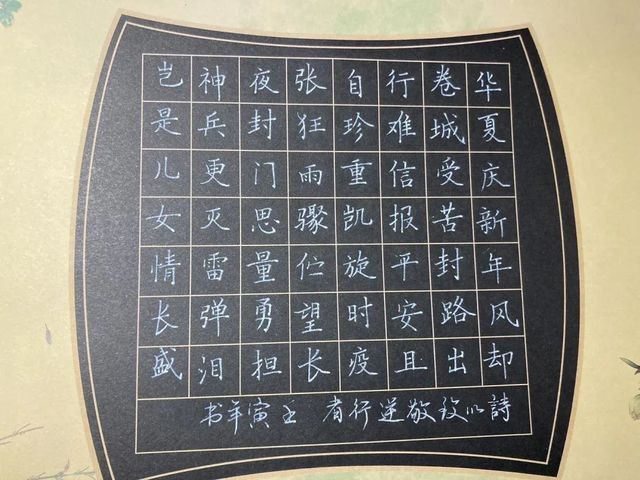 华夏庆新年风却
卷城受苦封路出
行难信报平安且
自珍重凯旋时疫
张狂雨骤伫望长
夜封门思量勇担
神兵更灭雷弹泪
岂是儿女情长盛
詩以致敬逆行者 壬寅年书